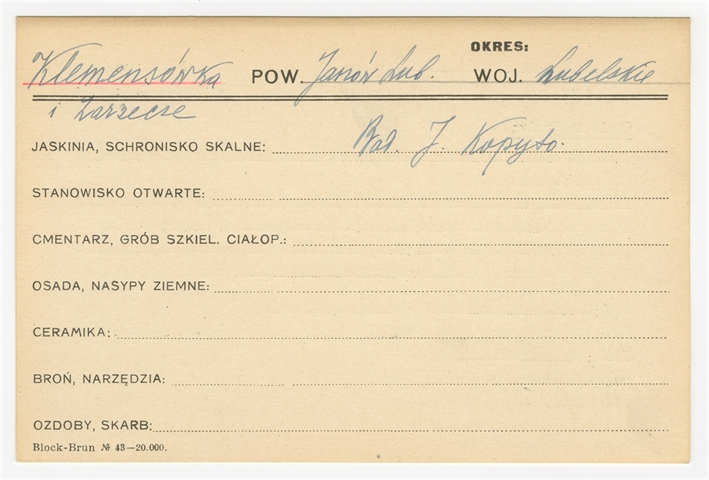 OKRES:
Klemensówka POW. Janów Lub. WOJ. Lubelskie
i Zarzecze
JASKINIA, SCHRONISKO SKALNE: Bad. J. Kopyto.
STANOWISKO OTWARTE:
CMENTARZ, GRÓB SZKIEL. CIAŁOP.:
OSADA, NASYPY ZIEMNE:
CERAMIKA:
BROŃ, NARZĘDZIA:
OZDOBY, SKARB:
Block-Brun № 43—20.000.